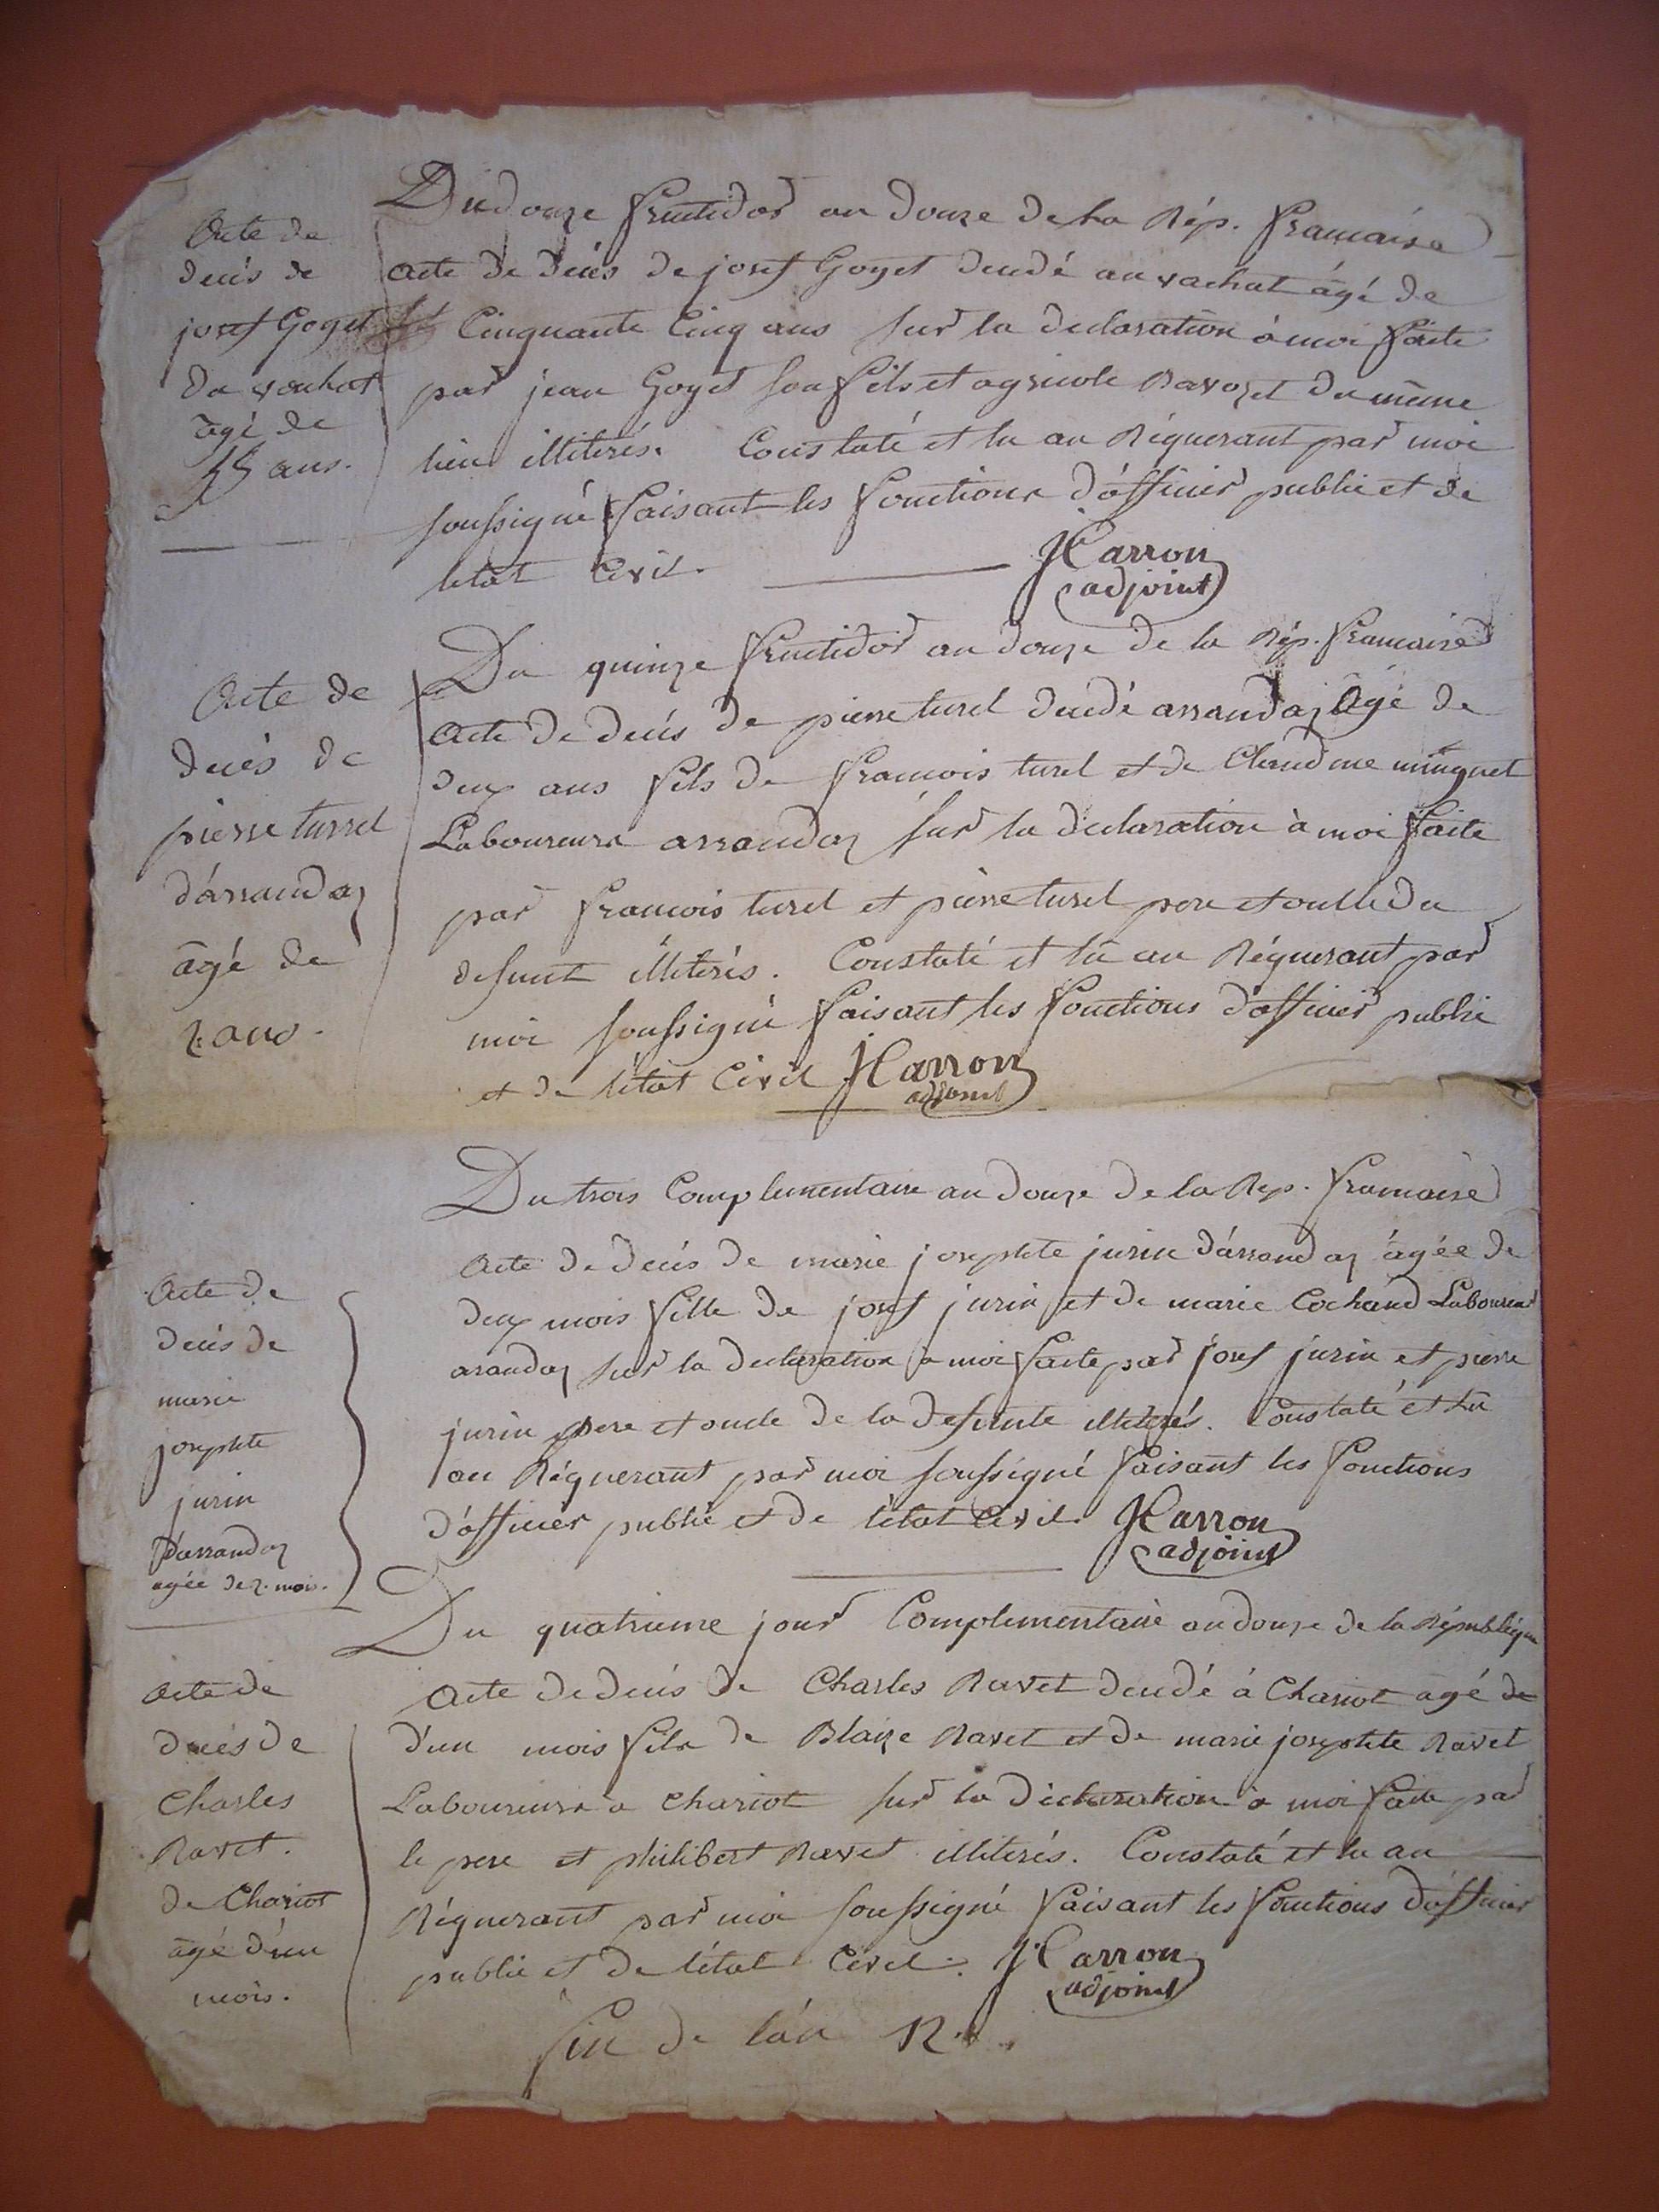 Acte de
decès de
josef Goyet
du vachat
agé de
55 ans.
Du douze fructidor an douze de la Rép. francaise
acte de decès de josef Goyet decedé au vachat âgé de
Cinquante Cinq ans sur la declaration à moi faite
par jean Goyet son fils et agricole Ravozet du même
lieu illiterés. Constaté et lu au Réquerant par moi
soussigné faisant les fonctions d'officier public et de
letat Civil.
JCarron
adjoint
Acte de
decès de
pierre turrel
d'arrandaz
âgé de
2. ans.
Du quinze fructidor an douze de la Rép. francaise
acte de decés de pierre turel decedé arrandaz Agé de
deux ans fils de francois turel et de Claudine minguet
Laboureurs arrandaz sur la declaration à moi faite
par francois turel et pierre turel pere et oncle du
defunt illiterés. Constaté et lû au Réquerant par
moi soussigné faisant les fonctions d'officier public
et de l'état Civil JCarron
adjoint
Acte de
decès de
marie
josephte
jurin
D'arrandaz
agée de 2. mois.
Du trois Complementaire an douze de la Rep. francaise
acte de decés de marie josephte jurin d'arrandaz âgée de
deux mois fille de josef jurin et de marie Cochand Laboureur
arandaz sur la declaration a moi faite par josef jurin et pierre
jurin pere et oncle de la defunte illiterés. Constaté et Lu
au Réquerant par moi soussigné faisant les fonctions
d'officier public et de l'état Civil. JCarron
adjoint
Du quatrieme jour Complimentaire an douze de la République
acte de
decés de
Charles
Ravet.
de Chariot
agé d'un
mois.
acte de decés de Charles Ravet decedé à Chariot agé de
d'un mois fils de Blaize Ravet et de marie josephte Ravet
Laboureurs a Chariot sur la déclaration à moi faite par
le pere et philibert Ravet illiterés. Constaté et lu au
Réquerant par moi soussigné faisant les fonctions d'officier
public et de l'état Civil. JCarron
adjoint
fin de l'an 12.